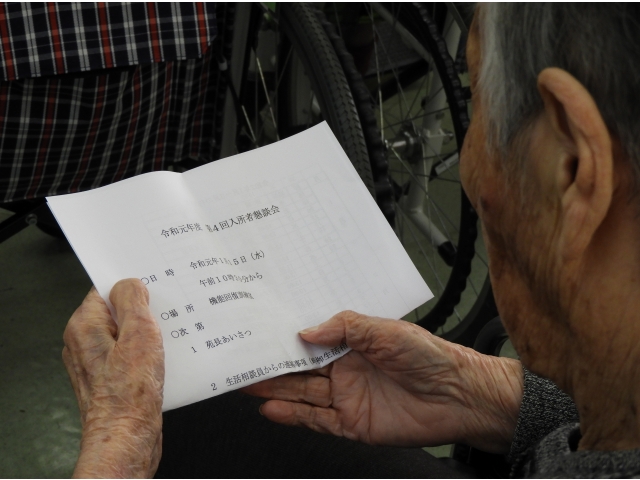 令和元年度 第4回入所者懇談会
○日 時 令和元年 5日(水)
午前10時 分から
○場 所 機能回復訓練室
○次 第
1 苑長あいさつ
2 生活相談員からの連絡事項